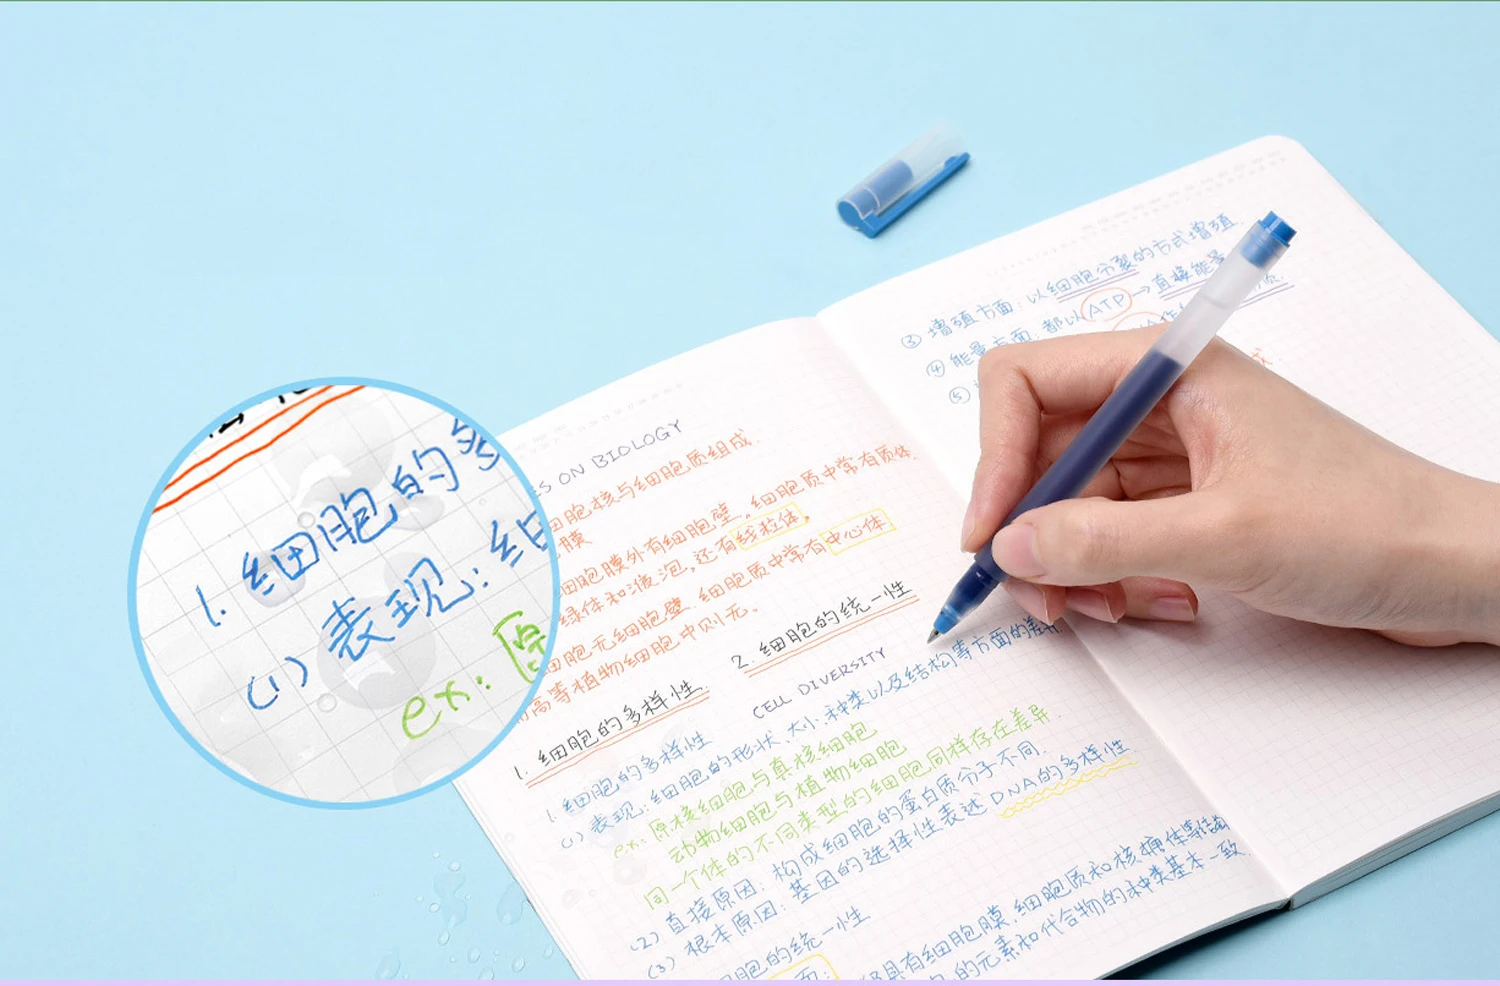 1. 细胞的多
(1) 表现: 细
ex: 原
ES ON BIOLOGY
细胞核与细胞质组成.
膜
细胞膜外有细胞壁。细胞质中常有质体.
绿体和液泡,还有线粒体.
细胞无细胞壁.细胞质中常有中心体
高等植物细胞中则无。
1. 细胞的多样性.
1. 细胞的多样性
(1) 表现:细胞的形状.大小.种类以及结构等方面的差异
ex: 原核细胞与真核细胞
动物细胞与植物细胞
同一个体的不同类型的细胞同样存在差异.
(2) 直接原因: 构成细胞的蛋白质分子不同.
(3) 根本原因: 基因的选择性表述DNA的多样性.
细胞的统一性
具有细胞膜.细胞质和核糖体等结构
的元素和化合物的种类基本一致.
2. 细胞的统一性
CELL DIVERSITY
③ 增殖方面: 以细胞分裂的方式增殖
④ 能量方面. 都以ATP→直接能
⑤